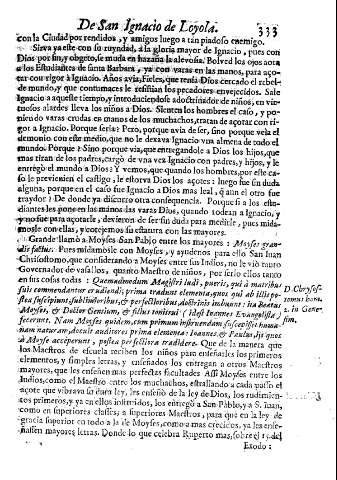 De San Ignacio de Loyola. 333
con la Ciudad por rendidos, y amigos luego a tan piadoso enemigo.
Sirva ya este con su ruyndad, à la gloria mayor de Ignacio, pues con
Dios por fin, y obgeto, se muda en hazaña la alevosia. Bolved los ojos aora
a los Estudiantes de santa Barbara, ya con varas en las manos, para aço-
tar con rigor à Ignacio. Años avia, Fieles, que tenia Dios cercado el rebel-
de mundo, y que contumaces le resistian los pecadores envejecidos. Sale
Ignacio a aqueste tiempo, y introduciendose a doctrinador de niños, en vir-
tuosos alardes lleva los niños a Dios. Sienten los hombres el caso, y po-
niendo varas crudas en manos de los muchachos, tratan de açotar con ri-
gor a Ignacio. Porque seria? Pero, porque avia de ser, sino porque veìa el
demonio con este medio, que no le dexava Ignacio vna almena de todo el
mundo. Porque? Sino porque via, que entregandole a Dios los hijos, que
mas tiran de los padres, cargò de vna vez Ignacio con padres, y hijos, y le
entregò el mundo a Dios? Y vemos, que quando los hombres, por este ca-
so le previenen el castigo, le estorva Dios los açotes: luego fue sin duda
alguna, porque en el caso fue Ignacio a Dios mas leal, q̃ aun el otro fue
traydor? De donde ya discurro otra consequencia. Porque si a los estu-
diantes les pone en las manos las varas Dios, quando rodean a Ignacio, y
y no fue para açotarle, devieron de ser sin duda para medirle, pues mida-
mosle con ellas, y cotejemos su estatura con las mayores.
Grande llamò a Moyses San Pablo entre los mayores: Moyses gran-
dis factus. Pues midamosle con Moyses, y ayudenos para ello San Iuan
Chrisostomo, que considerando a Moyses entre sus Indios, no le viò tanto
Governador de vasallos, quanto Maestro de niños, por serlo ellos tanto
en sus cosas todas: Quemadmodum Magistri ludi, pueris, qui à matribus
suis commendantur erudiendi, prima tradunt elementa, quos qui ab illis po-
stea suscipiunt, sublimioribus, & perfectioribus, doctrinis imbuunt: ita Beatus
Moyses, & Doctor Gentium, & filius tonitrui (idest Ioannes Evangelista,)
fecerunt. Nam Moyses quidem, cum primum instruendam suscepisset huma-
nam naturam, docuit auditores prima elementa: Ioannes, & Paulus, ijs quos
à Moyse acceperunt, postea perfectiora tradidere. Que de la manera que
los Maestros de escuela reciben los niños para enseñarles los primeros
elementos, y simples letras, y enseñados los entregan a otros Maestros
mayores, que les enseñen mas perfectas facultades. Assi Moyses entre los
Indios, como el Maestro entre los muchachos, estrallando a cada passo el
açote que vibrava su dura ley, les enseño de la ley de Dios, los rudimien-
tos primeros, y ya en ellos instruidos, los entregò a San Pablo, y a S. Iuan,
como en superiores classes, a superiores Maestros, para que en la ley de
gracia superior en todo a la de Moyses, como a mas crecidos, ya les ense-
ñassen mayores letras. Donde lo que celebra Ruperto mas, sobre el 15. del
Exodo:
D. Chrysos-
tomus hom.
2. in Gene-
sim.